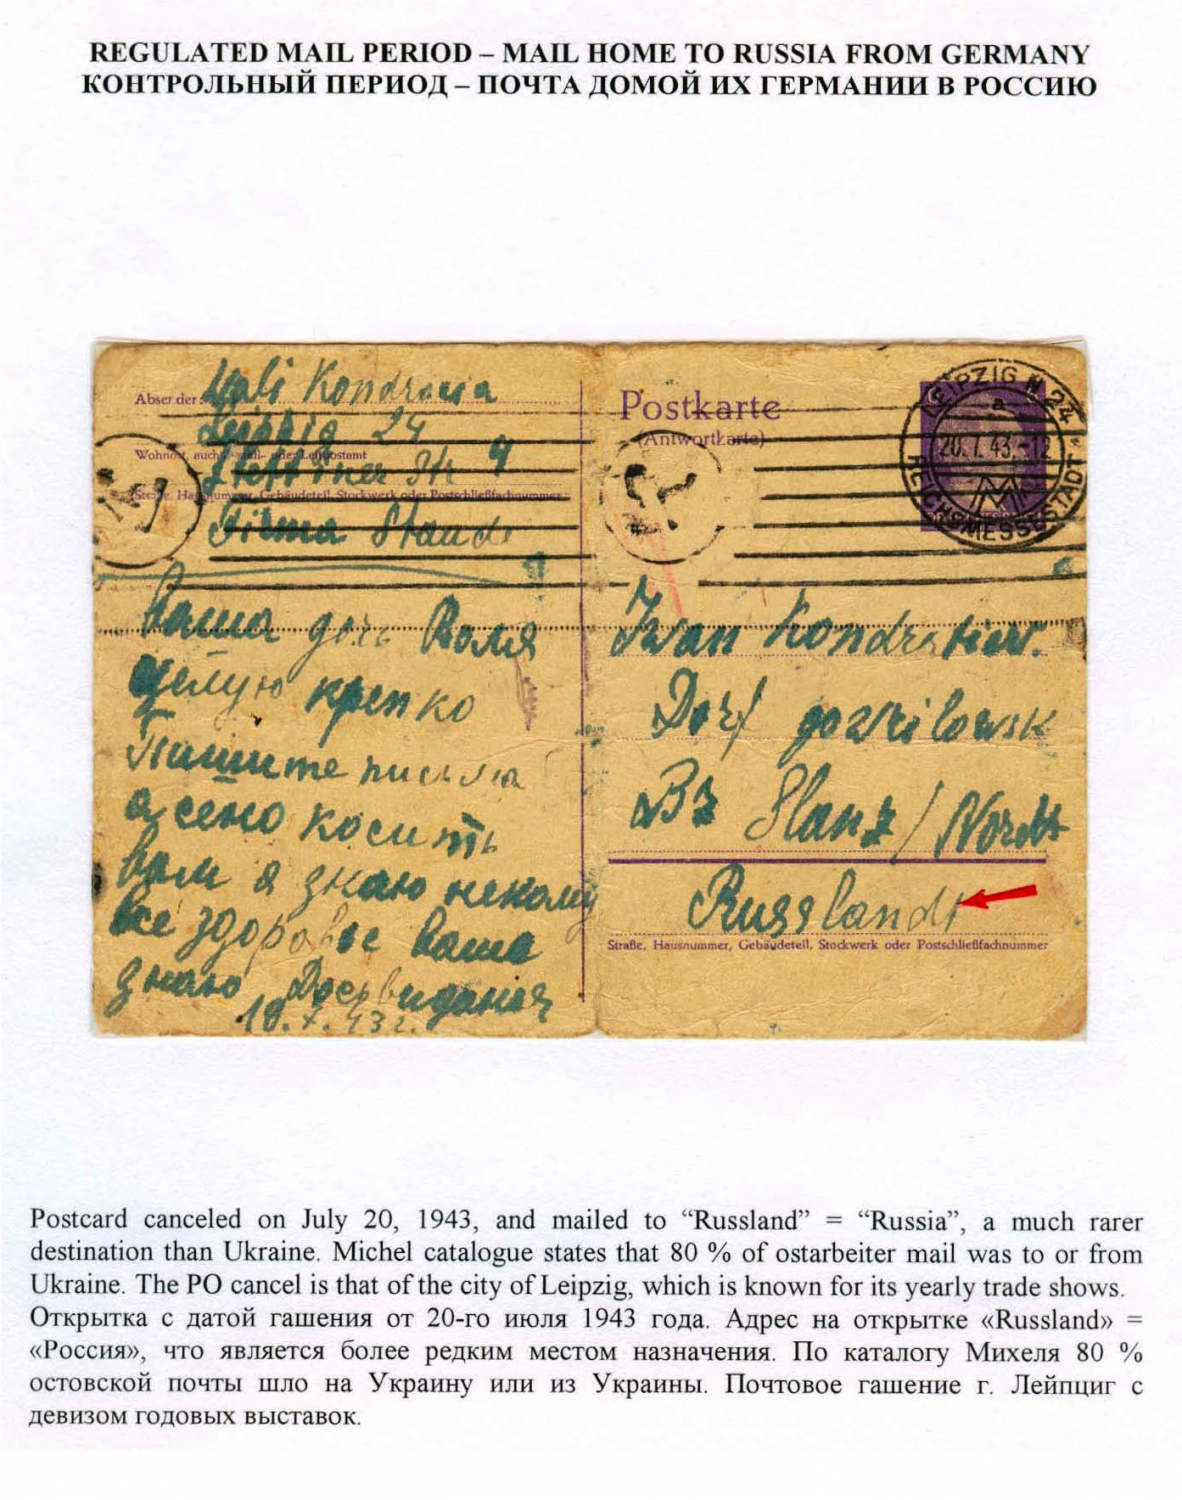 REGULATED MAIL PERIOD – MAIL HOME TO RUSSIA FROM GERMANY
КОНТРОЛЬНЫЙ ПЕРИОД – ПОЧТА ДОМОЙ ИХ ГЕРМАНИИ В РОССИЮ
Abs
Wali Kondr
Leipzig 24
Wohnort, auch
Stettiner Str 9
Gebäudeteil, Stockwerk oder Postschließfachnummer
Firma Staud
Ваша дочь Валя
Целую крепко
Пишите письма
а сено косить
вам я знаю некому
все здоровье ваше
знаю Досвидания
19.7.43 г.
Postkarte
(Antwortkarte)
LEIPZIG N 24
a
20.7.43.-12
REICHSMESSESTADT
Iwan Kondratiew.
Dorf
Bz Slanz / Nordt
Russlandt
Straße, Hausnummer, Gebäudeteil, Stockwerk oder Postschließfachnummer
Postcard canceled on July 20, 1943, and mailed to “Russland” = “Russia”, a much rarer
destination than Ukraine. Michel catalogue states that 80 % of ostarbeiter mail was to or from
Ukraine. The PO cancel is that of the city of Leipzig, which is known for its yearly trade shows.
Открытка с датой гашения от 20-го июля 1943 года. Адрес на открытке «Russland» =
«Россия», что является более редким местом назначения. По каталогу Михеля 80 %
остовской почты шло на Украину или из Украины. Почтовое гашение г. Лейпциг с
девизом годовых выставок.